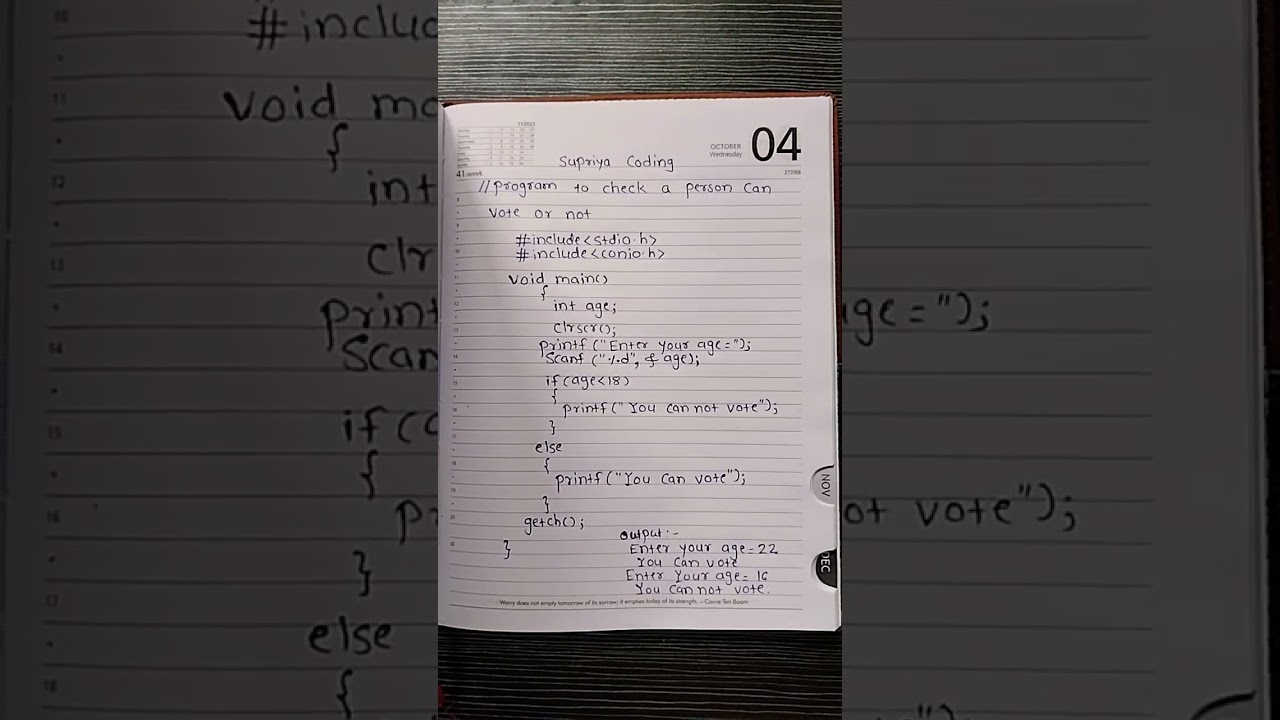 11/2023
OCTOBER
Wednesday
04
Supriya Coding
41 week
277/88
//program to check a person can
vote or not
#include<stdio.h>
#include<conio.h>
void main()
{
int age;
clrscr();
printf("Enter your age=");
scanf("%d", & age);
if(age<18)
{
printf("You can not vote");
}
else
{
printf("You can vote");
}
getch();
}
output:-
Enter your age=22
You can vote
Enter Your age= 16
You can not vote.
Worry does not empty tomorrow of its sorrow; it empties today of its strength. - Corrie Ten Boom
NOV
DEC